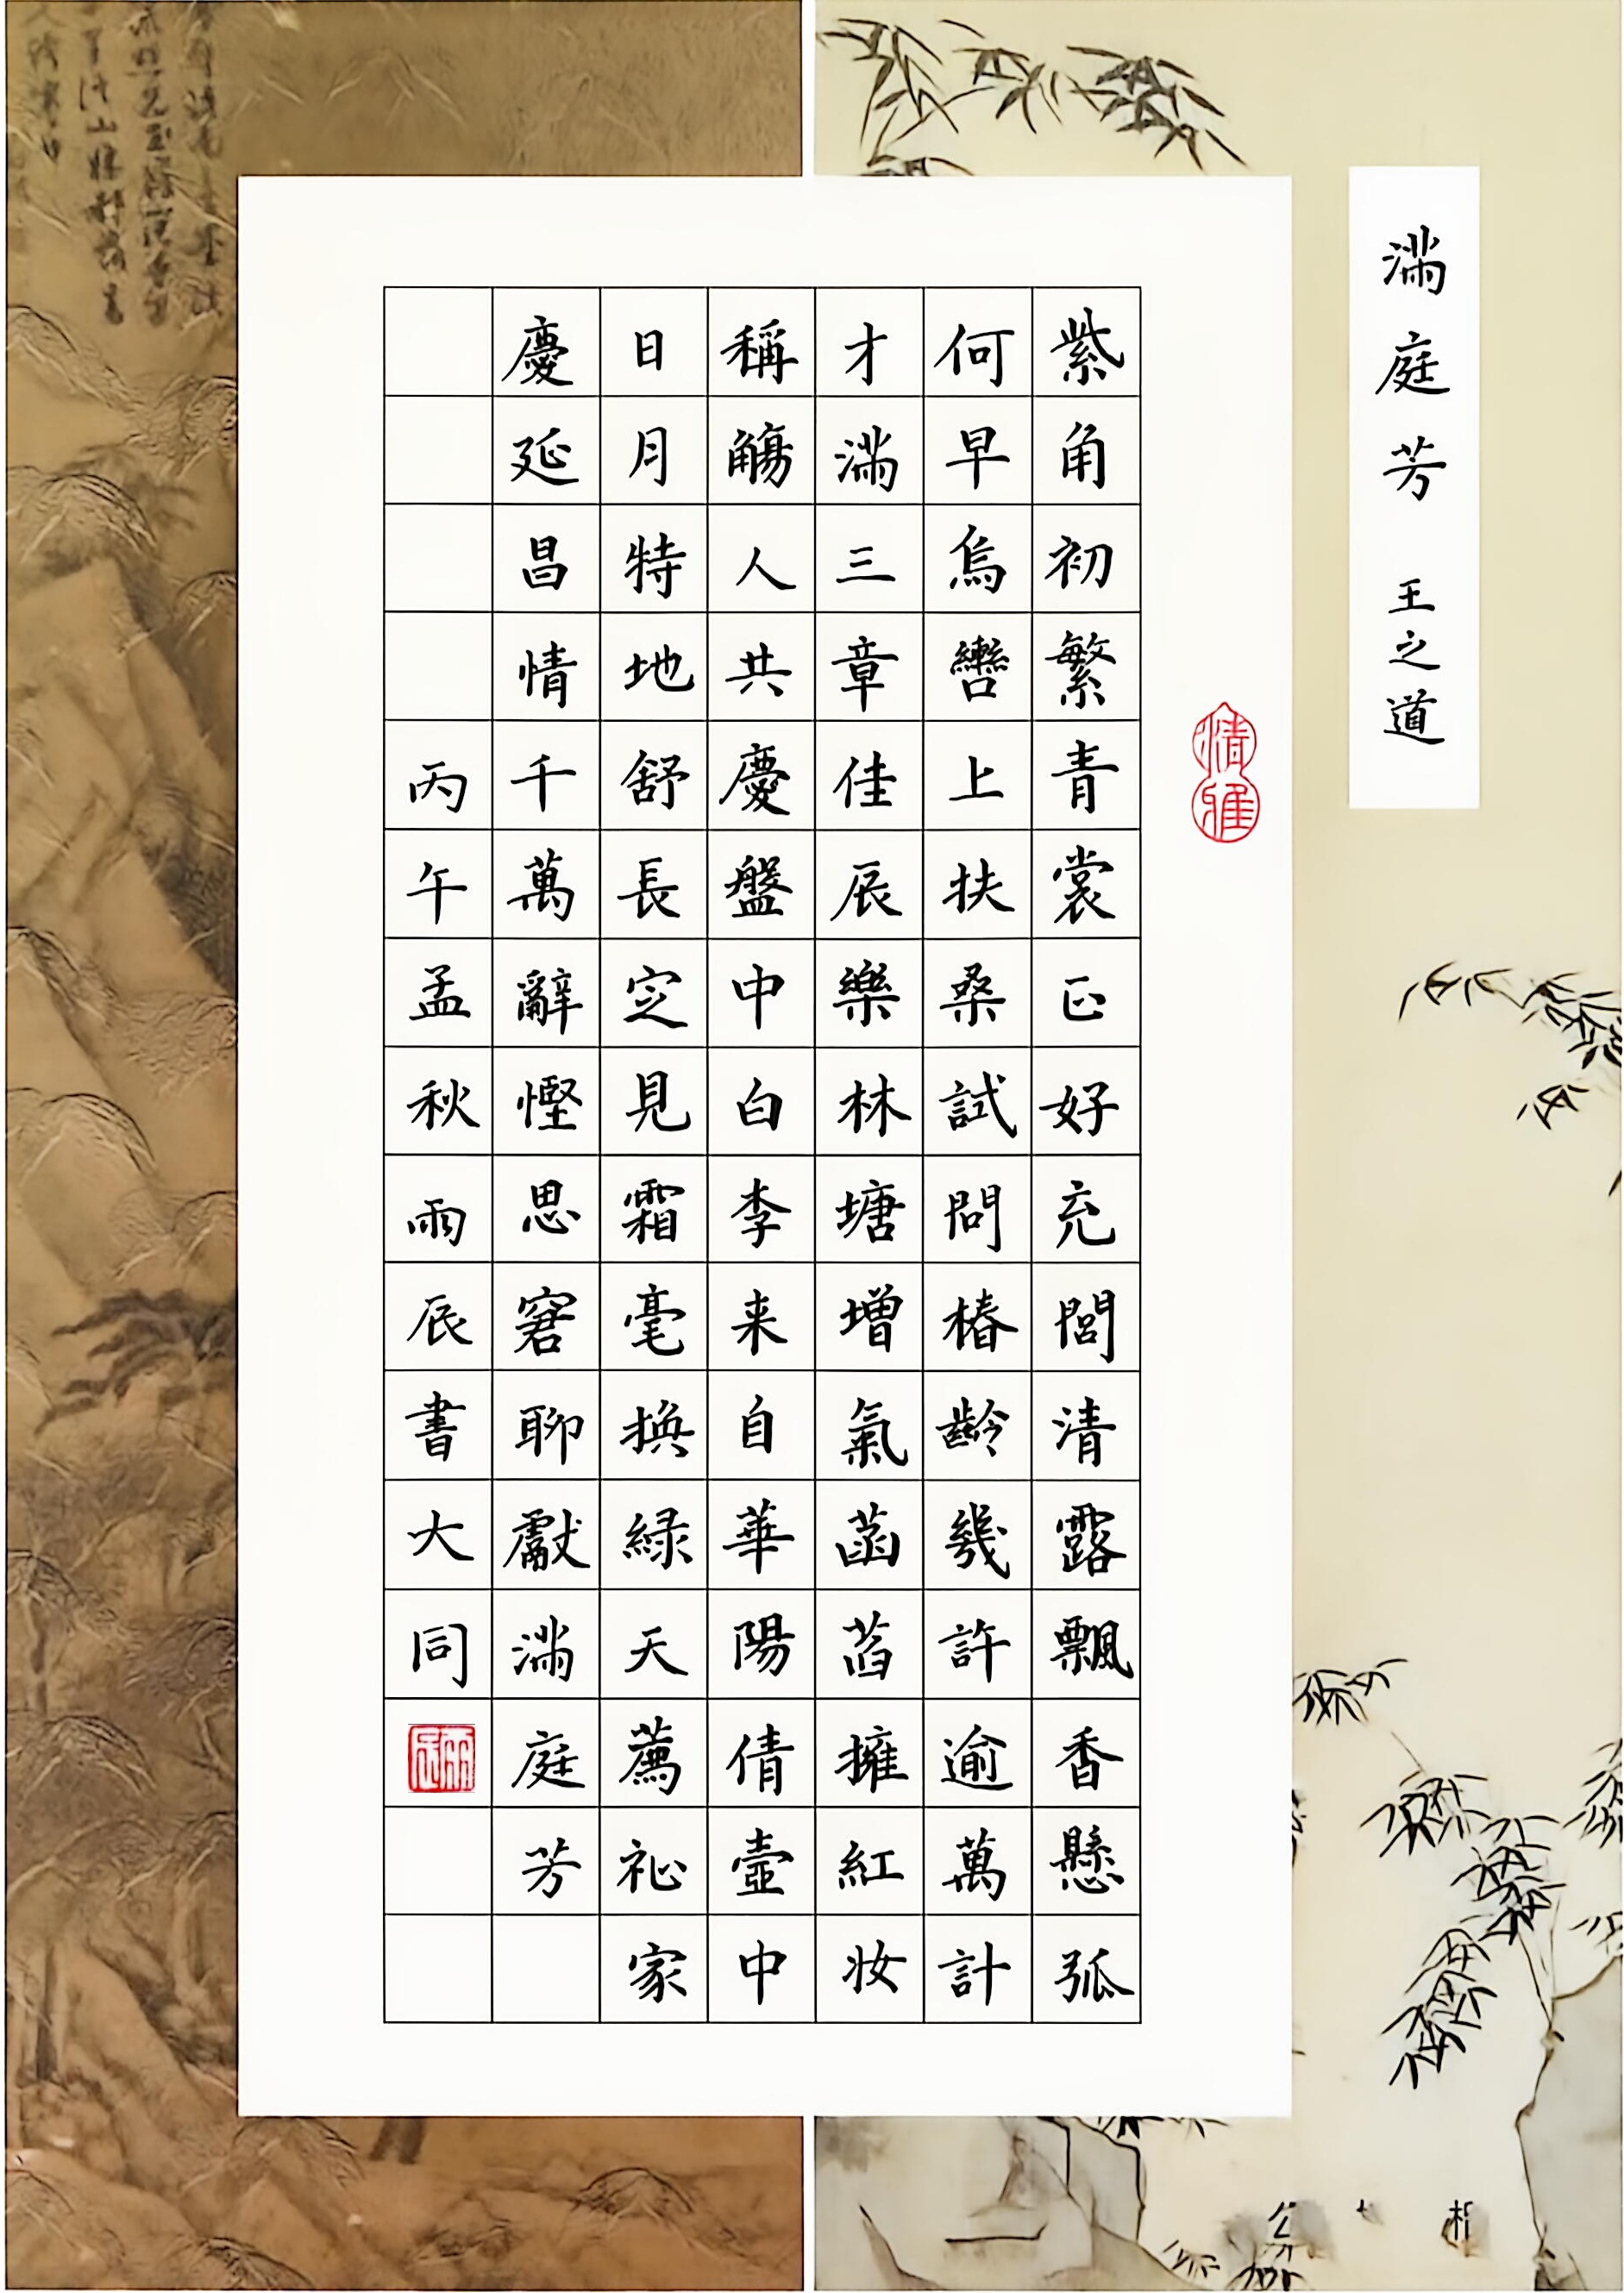 滿庭芳 王之道
清雅
紫角初繁青裳正好充閭清露飄香懸弧
何早烏轡上扶桑試問椿齡幾許逾萬計
才滿三章佳辰樂林塘增氣菡萏擁紅妝
稱觴人共慶盤中白李来自華陽倩壺中
日月特地舒長定見霜毫換緑天薦祉家
慶延昌情千萬辭慳思窘聊獻滿庭芳
丙午孟秋雨辰書大同
雨辰